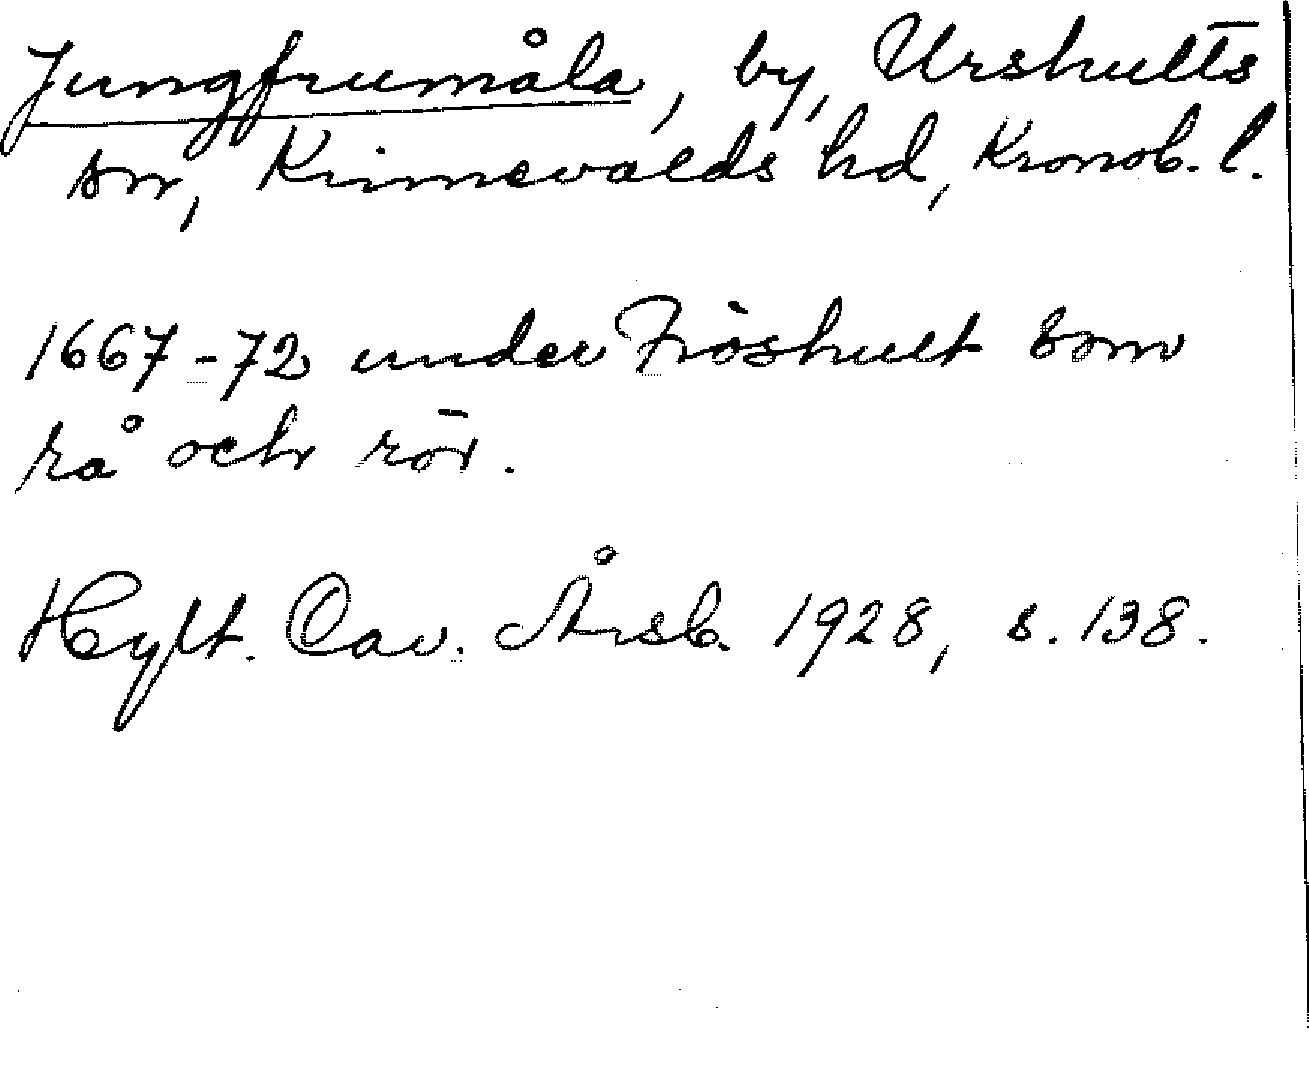 Jungfrumåla, by, Urshults
sn, Kinnevalds hd, Kronob. l.
1667-72 under Fröshult som
rå och rör.
Hylt. Cav. Årsb. 1928, s. 138.